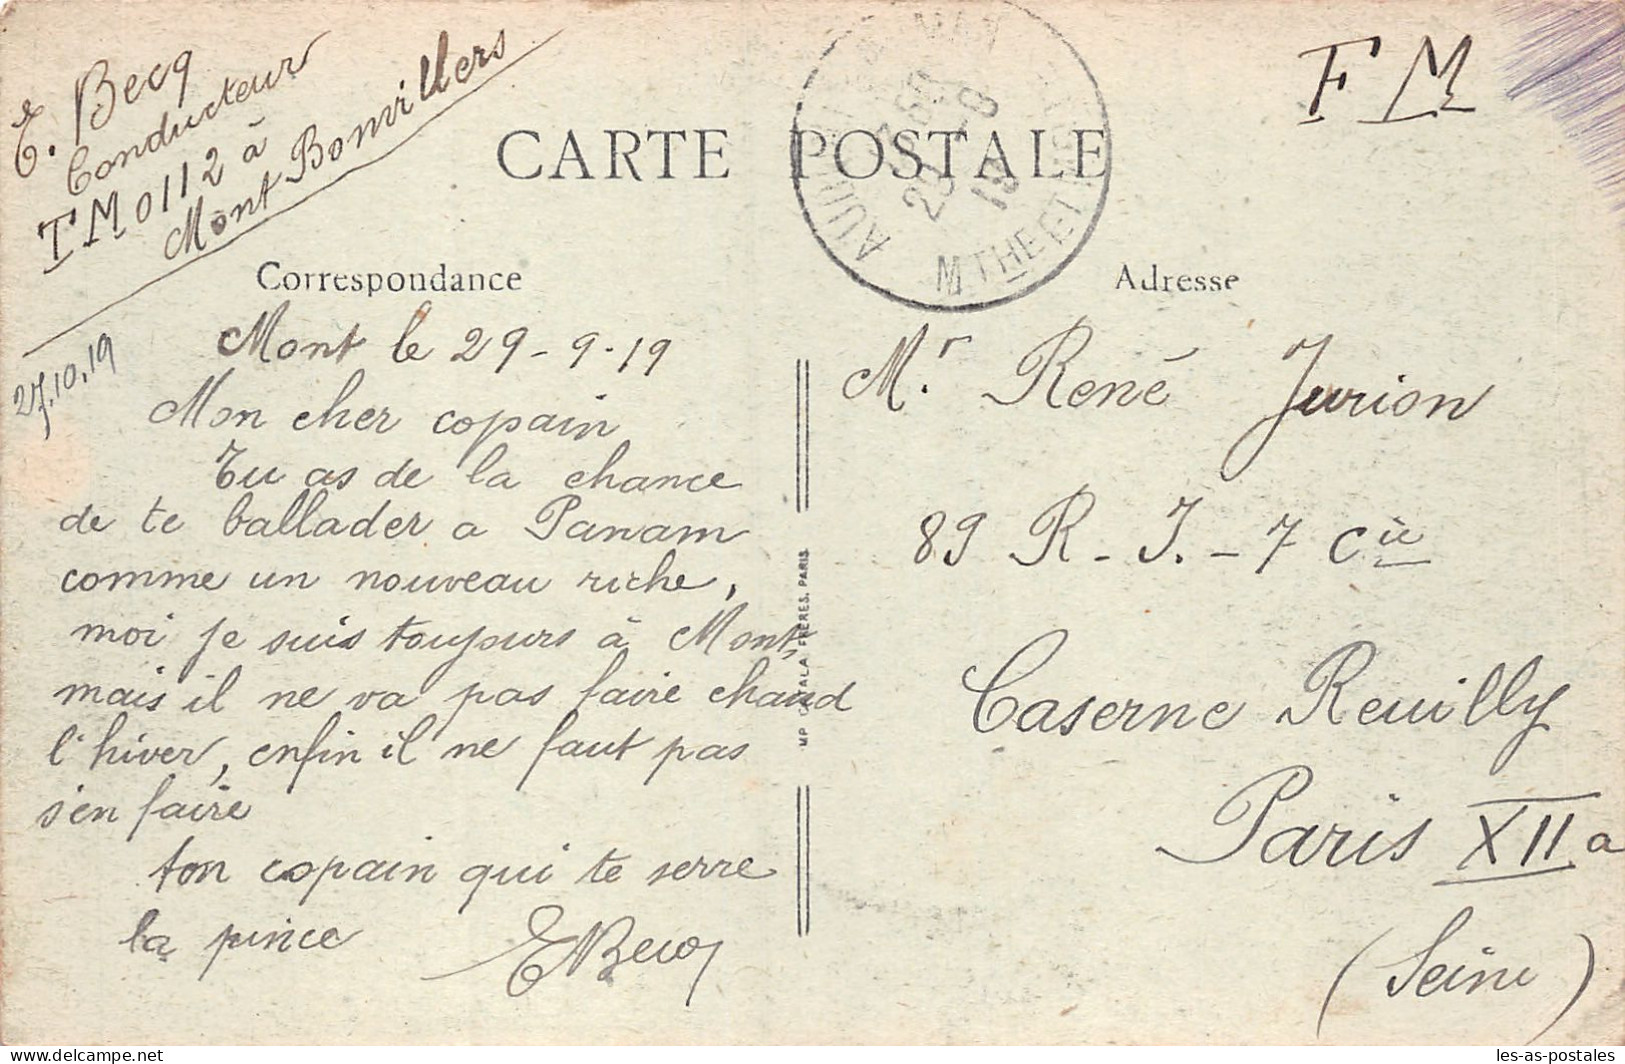 E. Becq
Conducteur
TM 0112 à
Mont Bonvillers
F M
CARTE POSTALE
AUDUN
MTHE ET
Correspondance
Adresse
27.10.19
Mont le 29-9-19
Mon cher copain
Tu as de la chance
de te ballader a Panam
comme un nouveau riche,
moi je suis toujours à Mont,
mais il ne va pas faire chaud
l'hiver, enfin il ne faut pas
s'en faire
ton copain qui te serre
la pince
EBecq
FRÈRES, PARIS
Mr. René Jurion
89 R-I.-7 Cie
Caserne Reuilly
Paris XII a
(Seine)
les-as-postales
delcampe.net